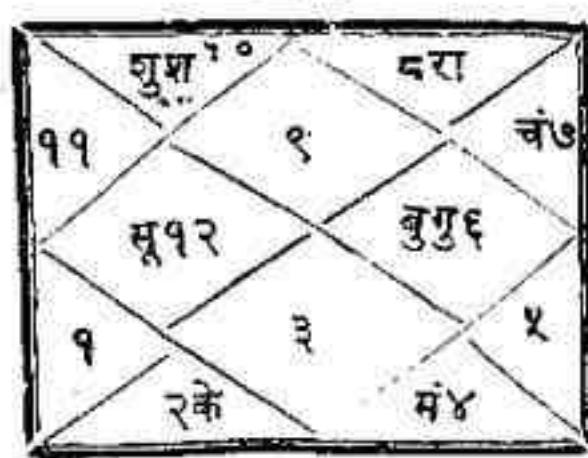 शुश १०
८रा
११
९
चं७
सू१२
बुगु६
१
३
५
२के
मं४